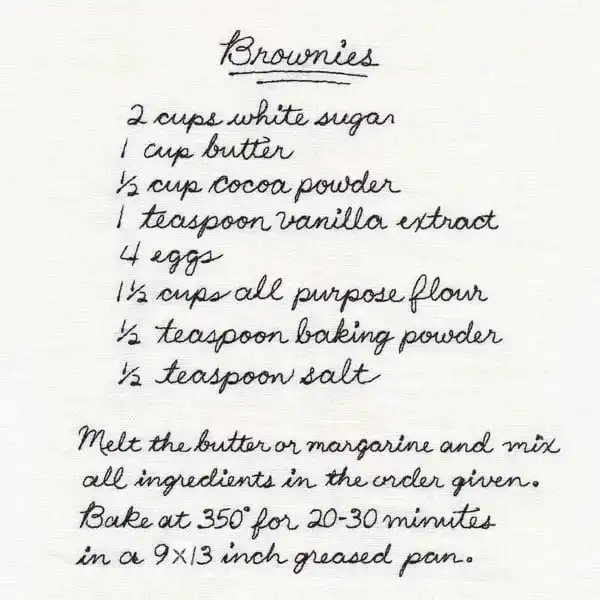 Brownies
2 cups white sugar
1 cup butter
½ cup cocoa powder
1 teaspoon vanilla extract
4 eggs
1½ cups all purpose flour
½ teaspoon baking powder
½ teaspoon salt
Melt the butter or margarine and mix
all ingredients in the order given.
Bake at 350° for 20-30 minutes
in a 9x13 inch greased pan.